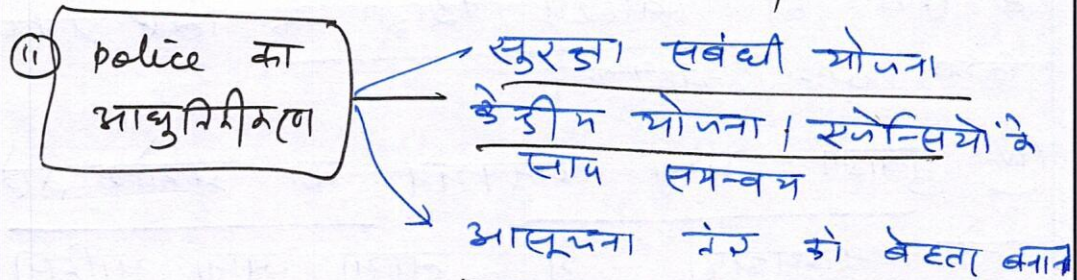 (ii) police का
आधुनिकीकरण
सुरक्षा सबंधी योजना
केंद्रीय योजना / एजेन्सियों के
साथ समन्वय
आसूचना तंत्र को बेहतर बनाना